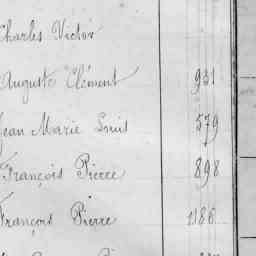 Charles Victor
Auguste Clément 931
Jean Marie Louis 579
François Pierre 898
François Pierre 1186